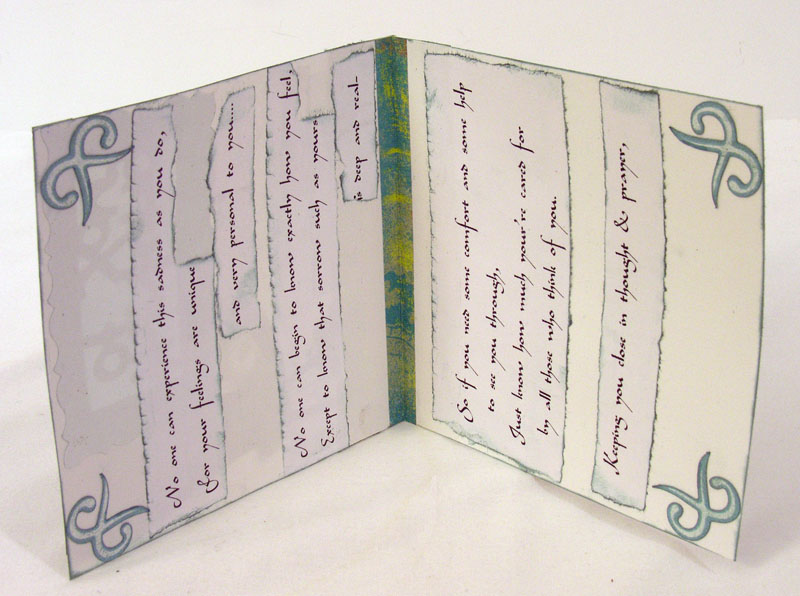 No one can experience this sadness as you do,
for your feelings are unique
and very personal to you....
No one can begin to know exactly how you feel,
Except to know that sorrow such as yours
is deep and real-
So if you need some comfort and some help
to see you through,
Just know how much your're cared for
by all those who think of you.
Keeping you close in thought & prayer,